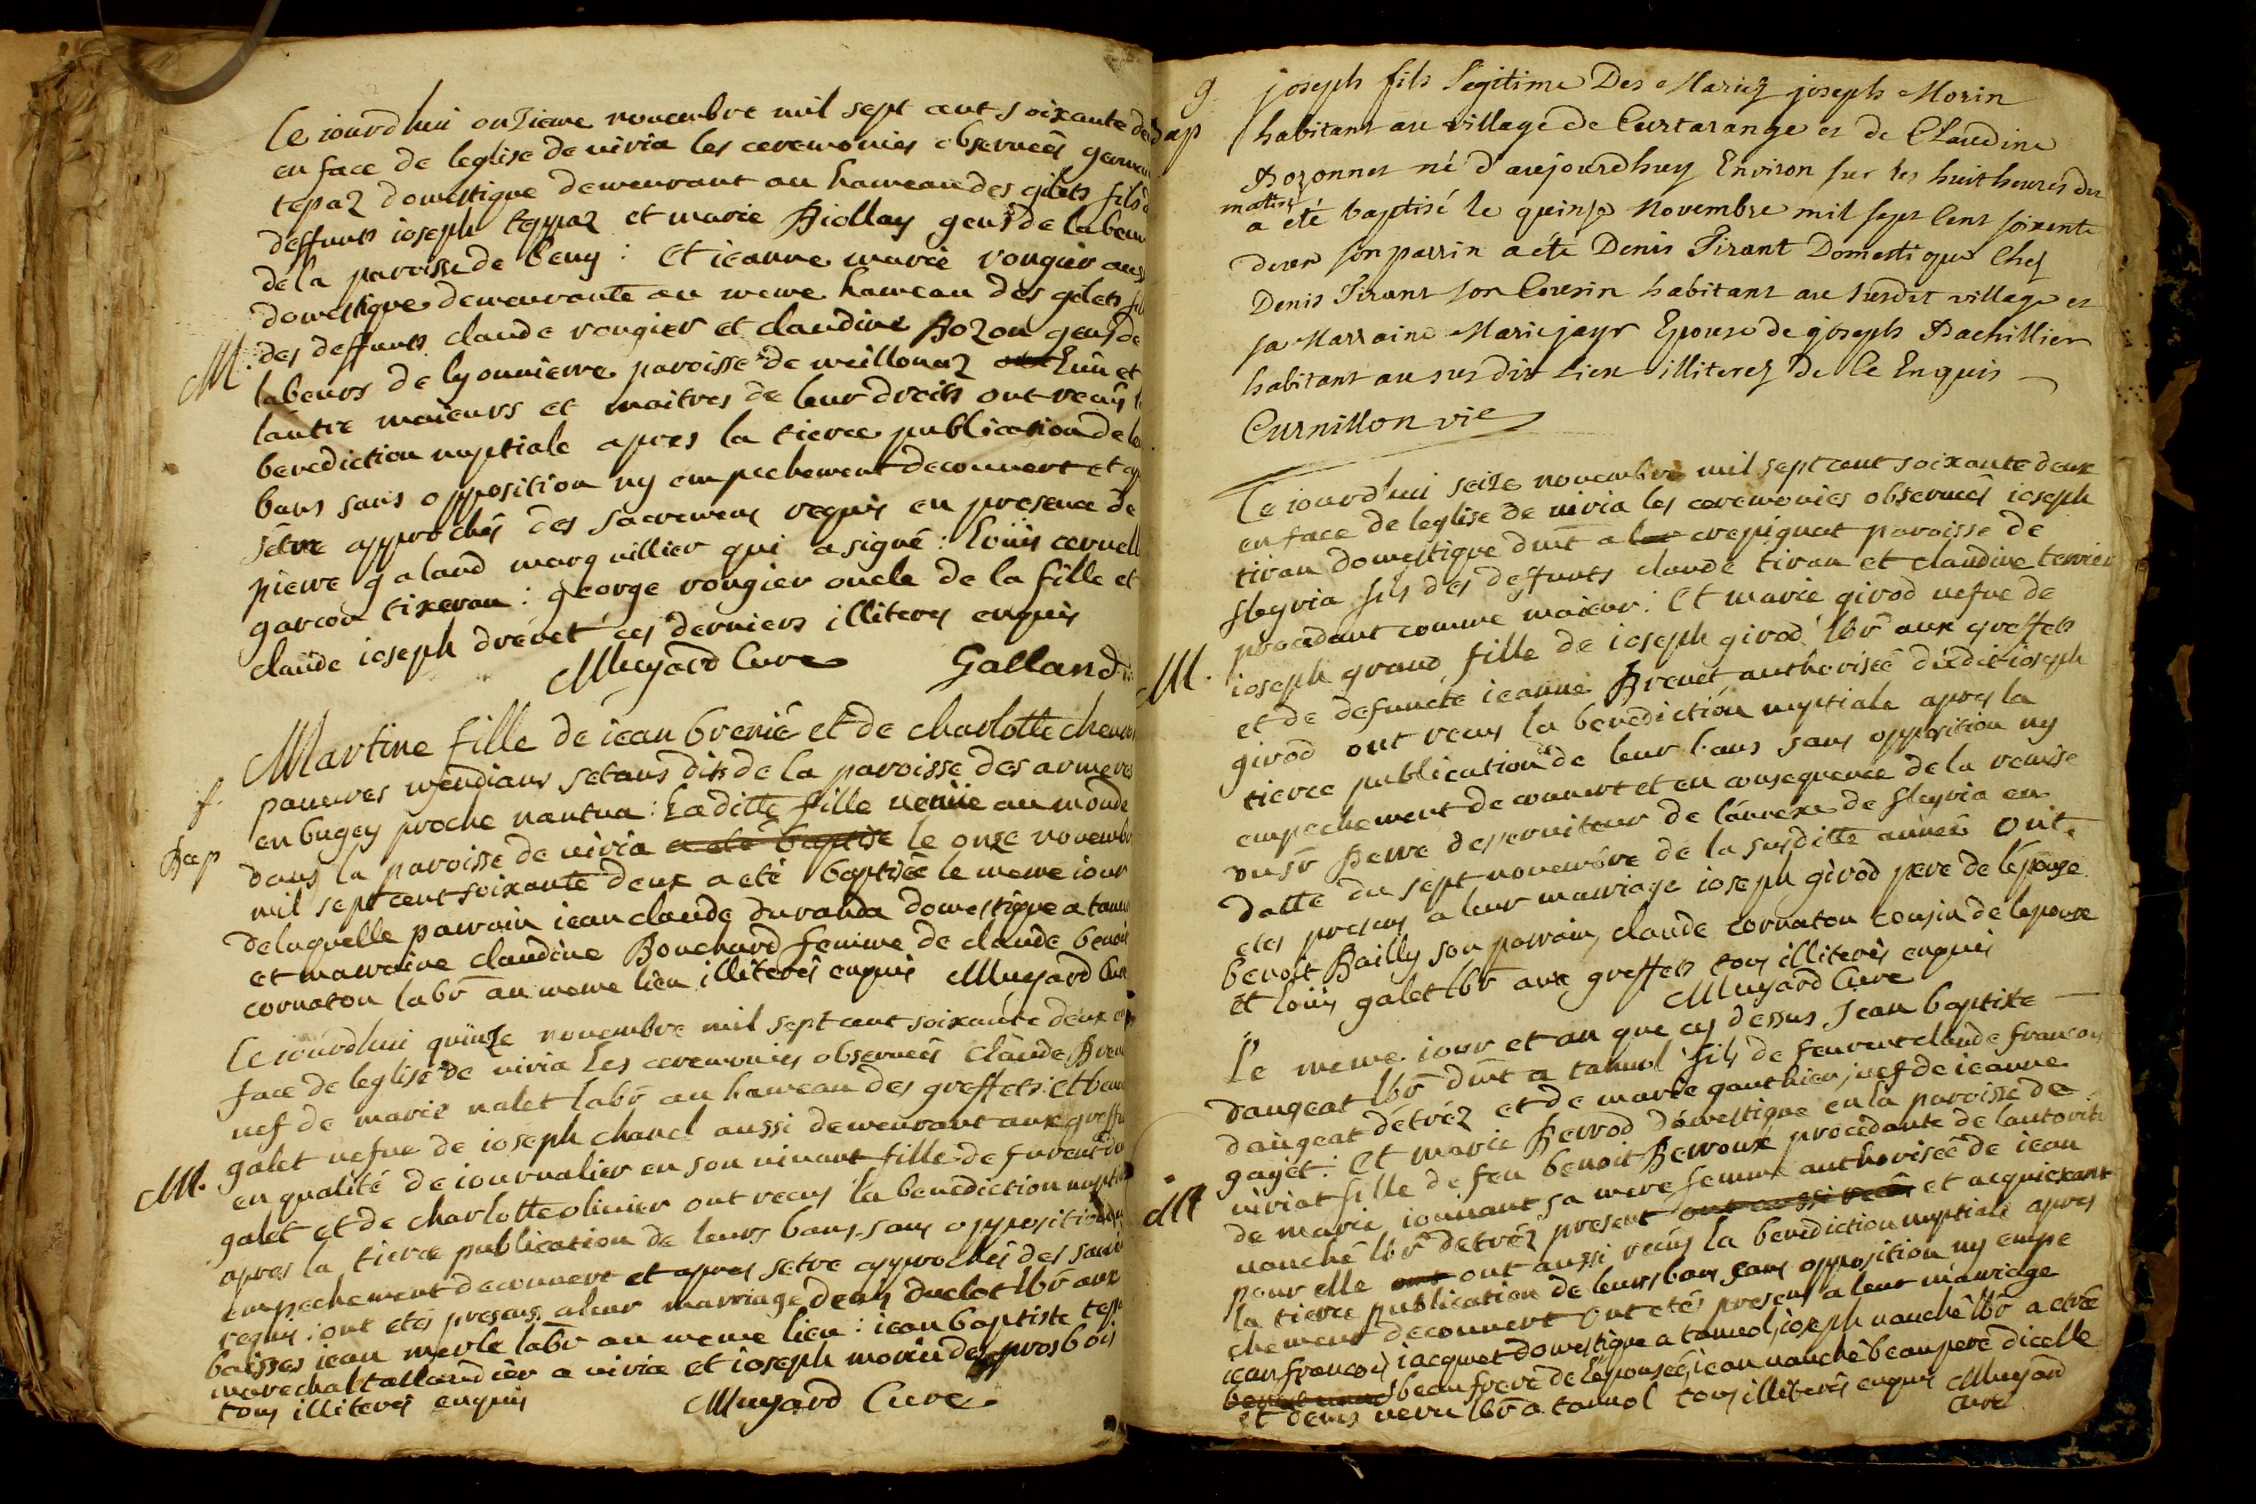 Ce iourdhui onzieme novembre mil sept cent soixante de
en face de leglise de viria les ceremonies observeés
tepaz domestique demeurant au hameau des gilets fils
deffunts ioseph teppaz et marie Biollay gens de labeur
de la paroisse de beny : Et ieanne marie rongier auss
domestique demeurante au meme hameau des gilets
M. des deffunts claude rongier et claudine Bozon gens de
labeurs de lyonniere paroisse de meillonaz Lun et
lautre maieurs et maitres de leur droits ont recus
benediction nuptiale apres la tierce publication de
bans sans opposition ny empechement decouvert et
sètre approchés des sacremens requis en presence de
pierre galand marguillier qui a signé : Loüis
garcon tixeran : george rongier oncle de la fille et
claude ioseph drevet ces derniers illiteres enquis
Mugard Cure Galland
Martine fille de iean brenié et de charlotte
f. pauvres mendians setans dits de la paroisse des
en bugey proche nantua : Laditte fille venüe au monde
Bap dans la paroisse de viria a ete baptise le onze novembr
mil sept cent soixante deux a eté baptiseé le meme iour
de laquelle parrain iean claude duranda domestique a
et marraine claudine Bouchard femme de claude benoit
cornaton labr au meme lieu illiterés enquis Mugard Cure
Ce iourdhui quinze novembre mil sept cent soixante deux
face de leglise de viria Les ceremonies observeés Claude
vef de marie nalet labr au hameau des greffets : et
galet vefve de ioseph chanel aussi demeurant aux greffe
M. en qualité de iournalier en son vivant fille de
galet et de charlotte olivier ont recus la benediction
apres la tierce publication de leurs bans sans opposition
empechement decouvert et apres setre approchés des
requis : ont etés presens a leur marriage denis duclot lbr aux
baisses iean merle labr au meme lieu : iean baptiste
marechal tallandier a viria et ioseph morin des gros bois
tous illiterés enquis Mugard Cure
g. joseph fils Legitime Des Mariez joseph Morin
bap habitant au village de Curtarange et de Claudine
Bozonnet né d'aujourdhuy Environ sur les huit heures du
matin
a eté baptisé le quinze Novembre mil sept Cent soixente
deux son parrin a eté Denis Tirant Domestique Chez
Denis Tirant son Cousin habitant au susdit village et
sa Marraine Marie jayr Epouse de joseph Bachillier
habitant au susdit Lieu illiterez de Ce Enquis
Curnillon vic
Ce iourd'hui seize novembre mil sept cent soixante deux
en face de leglise de viria les ceremonies observeés ioseph
tiran domestique dmt a crepignat paroisse de
fleyria fils des deffunts claude tiran et claudine terrier
procedant comme maieur : Et marie girod vefve de
M. ioseph grand fille de ioseph girod lbr aux greffets
et de defuncte ieanne Brevet authoriseé dudit ioseph
girod ont recus la benediction nuptiale apres la
tierce publication de leur bans sans opposition ny
empechement decouvert et en consequence de la remise
du sr Berre desserviteur de lannexe de fleyria en
datte du sept novembre de la susditte anneé Ont
etes presens a leur marriage ioseph girod pere de lépouse
benoit Bailly son parrain, claude cornaton cousin de lepouse
et loüis galet lbr aux greffets tous illiterés enquis
Mugard Cure
Le meme iour et an que cy dessus Jean baptiste
dangeat lbr dmt a tanvol fils de claude francois
dangeat détréz et de marie gauthier, vef de ieanne
gayet : Et marie Berrod domestique en la paroisse de
M viriat fille de feu benoit Berroux procedante de lautorite
de marie iouvant sa mere femme authoriseé de iean
nanché lbr detréz present ont aussi recus et acquiexant
pour elle ont ont aussi recus la benediction nuptiale apres
la tierce publication de leurs bans sans opposition ny empe
chement decouvert Ont etés presens a leur marriage
iean francois iacquet domestique a tanvol, ioseph nanché lbr a etréz
beaufrere de lépouseé, iean nanché beaupere dicelle
et denis veru lbr a tanvol tous illiterés enquis Mugard
Curé